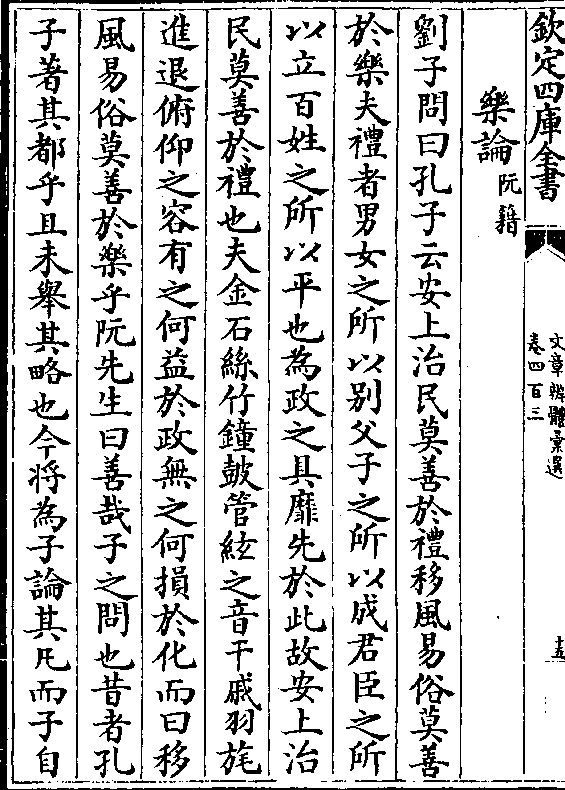 欽定四庫全書
文章辨體彙選
卷四百三
十五
樂論阮籍
劉子問曰孔子云安上治民莫善於禮移風易俗莫善
於樂夫禮者男女之所以别父子之所以成君臣之所
以立百姓之所以平也為政之具靡先於此故安上治
民莫善於禮也夫金石絲竹鐘鼓管絃之音干戚羽旄
進退俯仰之容有之何益於政無之何損於化而曰移
風易俗莫善於樂乎阮先生曰善哉子之問也昔者孔
子著其都乎且未舉其略也今將為子論其凡而子自